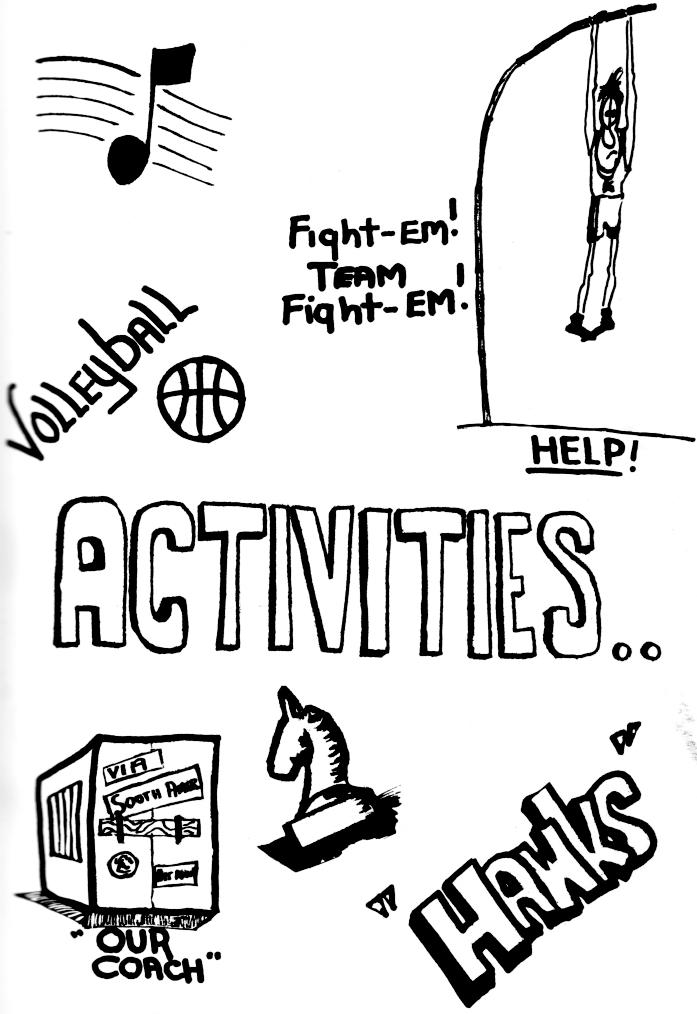 Fight-Em!
TEAM
Fight-EM!
VOLLEYbALL
HELP!
ACTIVITIES..
VIA
SOUTH
"OUR
COACH"
"HAWKS"